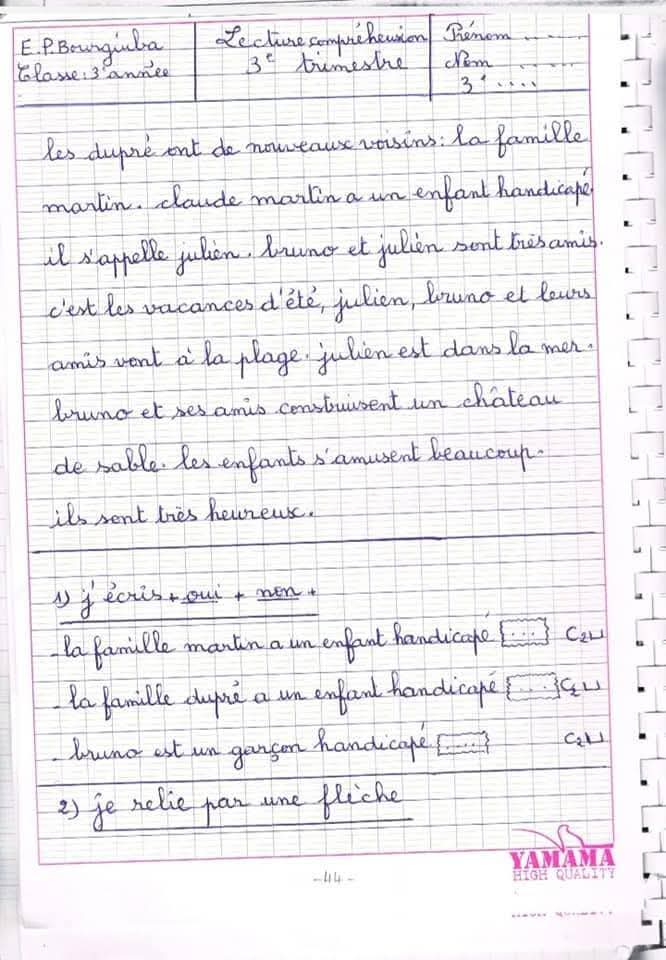 E.P.Bourguiba
Classe: 3e année
Lecture compréhension
3e trimestre
Prénom ........
Nom ........
3e ....
les dupré ont de nouveaux voisins: la famille
martin. claude martin a un enfant handicapé.
il s'appelle julien. bruno et julien sont très amis.
c'est les vacances d'été, julien, bruno et leurs
amis vont à la plage. julien est dans la mer.
bruno et ses amis construisent un château
de sable. les enfants s'amusent beaucoup.
ils sont très heureux.
1) j'écris + oui + non +
- la famille martin a un enfant handicapé [...] C2
- la famille dupré a un enfant handicapé [...] C2
- bruno est un garçon handicapé [...] C2
2) je relie par une flèche
YAMAMA
HIGH QUALITY
-44-